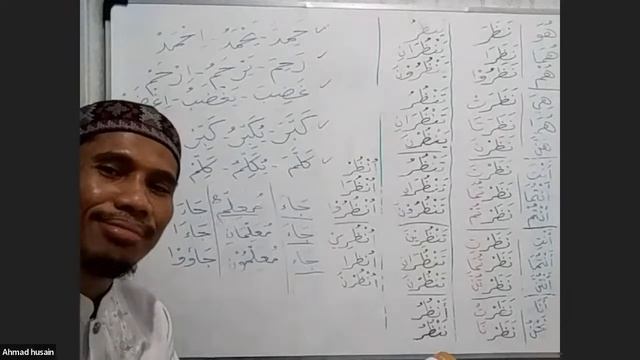 هُوَ
هُمَا
هُمْ
هِيَ
هُمَا
هُنَّ
أَنْتَ
أَنْتُمَا
أَنْتُمْ
أَنْتِ
أَنْتُمَا
أَنْتُنَّ
أَنَا
نَحْنُ
نَظَرَ
نَظَرَا
نَظَرُوْا
نَظَرَتْ
نَظَرَتَا
نَظَرْنَ
نَظَرْتَ
نَظَرْتُمَا
نَظَرْتُمْ
نَظَرْتِ
نَظَرْتُمَا
نَظَرْتُنَّ
نَظَرْتُ
نَظَرْنَا
يَنْظُرُ
يَنْظُرَانِ
يَنْظُرُوْنَ
تَنْظُرُ
تَنْظُرَانِ
يَنْظُرْنَ
تَنْظُرُ
تَنْظُرَانِ
تَنْظُرُوْنَ
تَنْظُرِيْنَ
تَنْظُرَانِ
تَنْظُرْنَ
أَنْظُرُ
نَنْظُرُ
اُنْظُرْ
اُنْظُرَا
اُنْظُرُوْا
اُنْظُرِيْ
اُنْظُرَا
اُنْظُرْنَ
حَمِدَ - يَحْمَدُ - اِحْمَدْ
رَحِمَ - يَرْحَمُ - اِرْحَمْ
غَضِبَ - يَغْضَبُ - اِغْضَبْ
كَبَّرَ - يُكَبِّرُ - كَبِّرْ
كَلَّمَ - يُكَلِّمُ - كَلِّمْ
جَاءَ مُعَلِّمٌ جَاءَ
جَاءَ مُعَلِّمَانِ جَاءَا
جَاءَ مُعَلِّمُوْنَ جَاؤُوْا
Ahmad husain